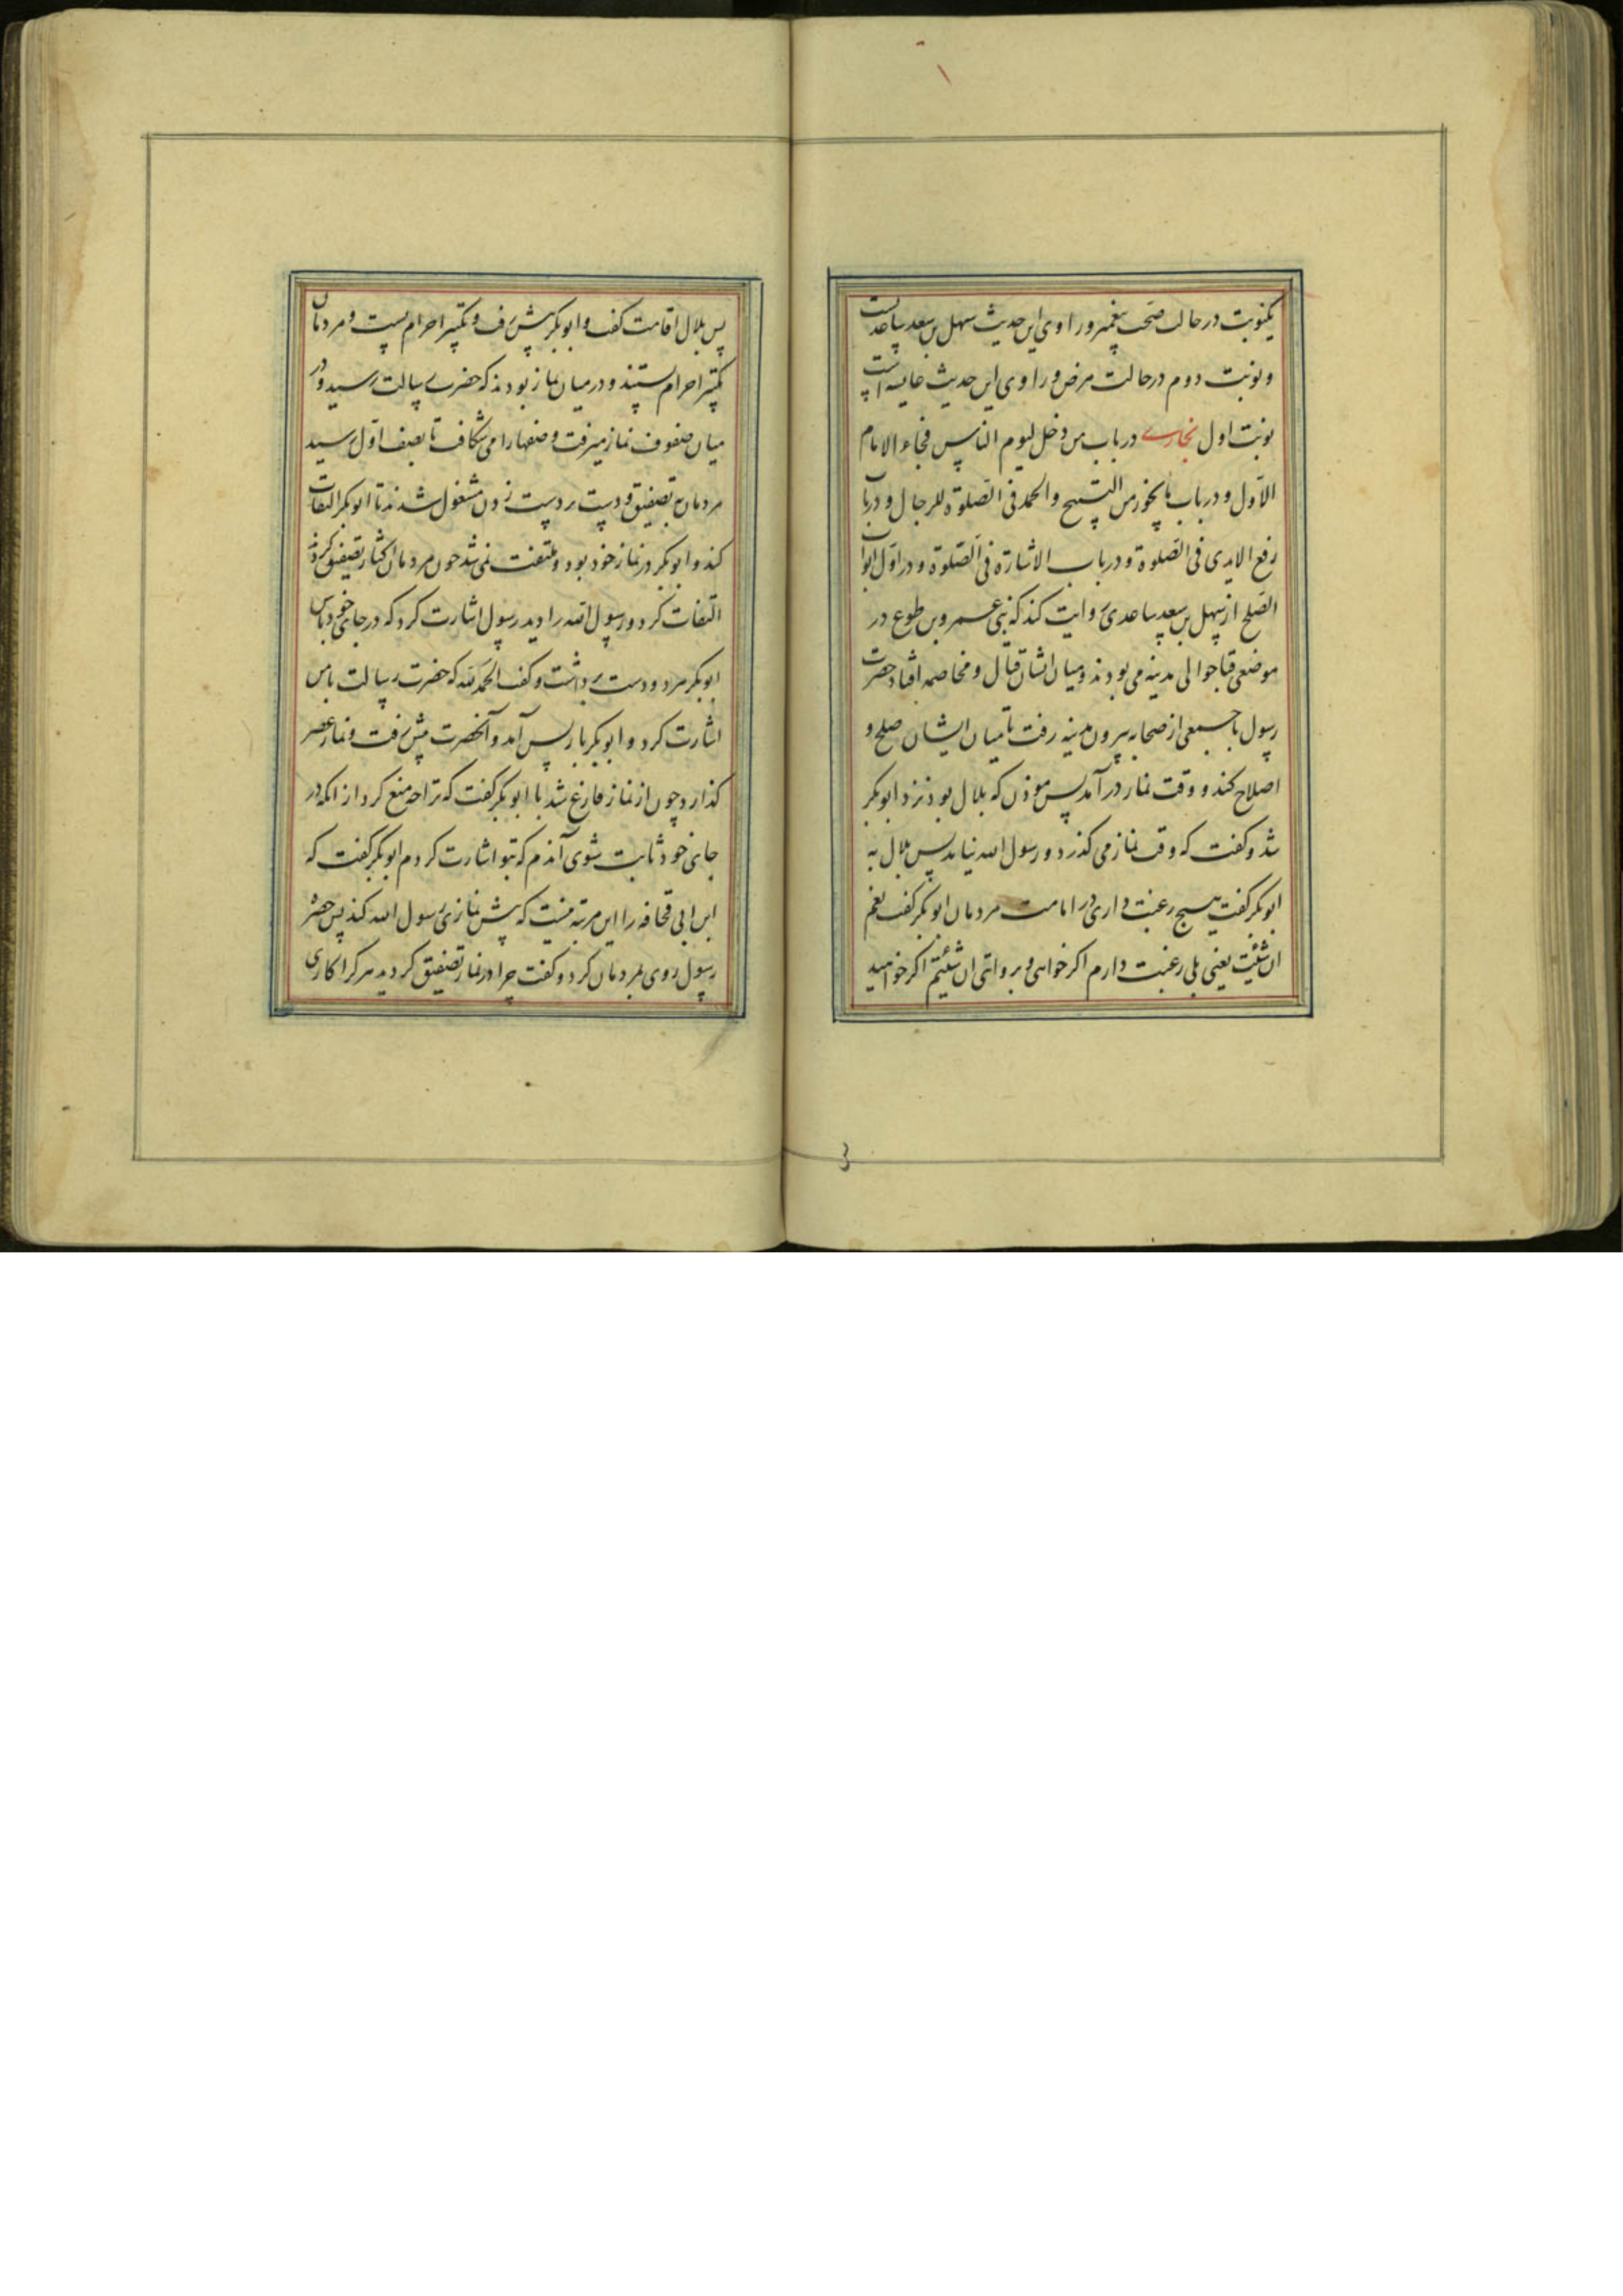 یکنوبت در حالت صحت پیغمبر و راوی این حدیث سهل بن سعد ساعدیست
و نوبت دوم در حالت مرض و راوی این حدیث عایشه است
نوبت اول بخاری در باب من دخل لیوم الناس فجاء الامام
الاول و در باب ما یجوز من التسبیح والحمد فی الصلوة للرجال و در باب
رفع الایدی فی الصلوة و در باب الاشارة فی الصلوة و در اول ابواب
الصلح از سهل بن سعد ساعدی روایت کند که بنی عمرو بن عوف در
موضعی قبا حوالی مدینه می بودند و میان ایشان قتال و مخاصمه افتاد حضرت
رسول با جمعی از صحابه بیرون مدینه رفت تا میان ایشان صلح و
اصلاح کند و وقت نماز در آمد پس موذن که بلال بود نزد ابوبکر
شد و کفت که وقت نماز می کذرد و رسول الله نیامد پس بلال به
ابوبکر کفت هیچ رغبت داری در امامت مردمان ابوبکر کفت نعم
ان شئت یعنی بلی رغبت دارم اکر خواهی و بروایتی ان شئتم اکر خواهید
پس بلال اقامت کفت و ابوبکر پیش رفت و تکبیر احرام بست و مردمان
تکبیر احرام بستند و در میان نماز بودند که حضرت رسالت رسید و در
میان صفوف نماز میرفت و صفها را می شکافت تا بصف اول رسید
مردمان به تصفیق و دست بر دست زدن مشغول شدند تا ابوبکر التفات
کند و ابوبکر در نماز خود بود و ملتفت نمی شد چون مردمان اکثار تصفیق کردند
التفات کرد و رسول الله را دید رسول اشارت کرد که در جای خود باش
ابوبکر مرد و دست برداشت و کفت الحمد لله که حضرت رسالت بامن
اشارت کرد و ابوبکر باز پس آمد و آنحضرت پیش رفت و نماز عصر
کذارد چون از نماز فارغ شد با ابوبکر کفت که ترا چه منع کرد از انکه در
جای خود ثابت شوی آندم که بتو اشارت کردم ابوبکر کفت که
ابن ابی قحافه را این مرتبه نیست که پیش نمازی رسول الله کند پس حضرت
رسول روی بمردمان کرد و کفت چرا در نماز تصفیق کردید هر کرا کاری